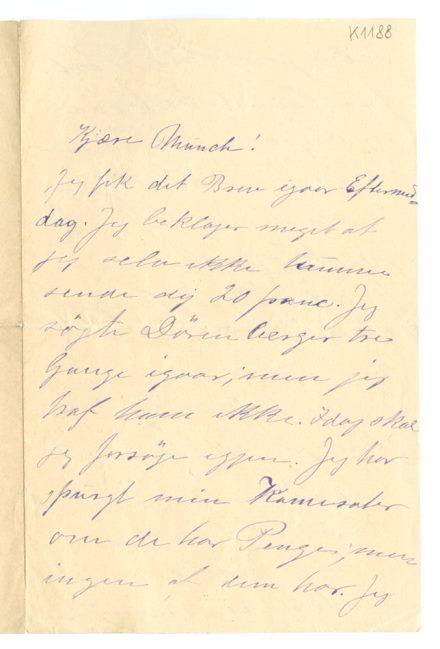 K1188
Kjære Munch!
Jeg fik det Brev igaar Eftermid-
dag. Jeg beklager meget at
jeg selv ikke kunne
sende dig 20 franc. Jeg
søgte Dören berger tre
Gange igaar; men jeg
traf ham ikke. Idag skal
jeg forsøge igjen. Jeg har
spurgt min
om de har Penge; men
ingen af dem har. Jeg